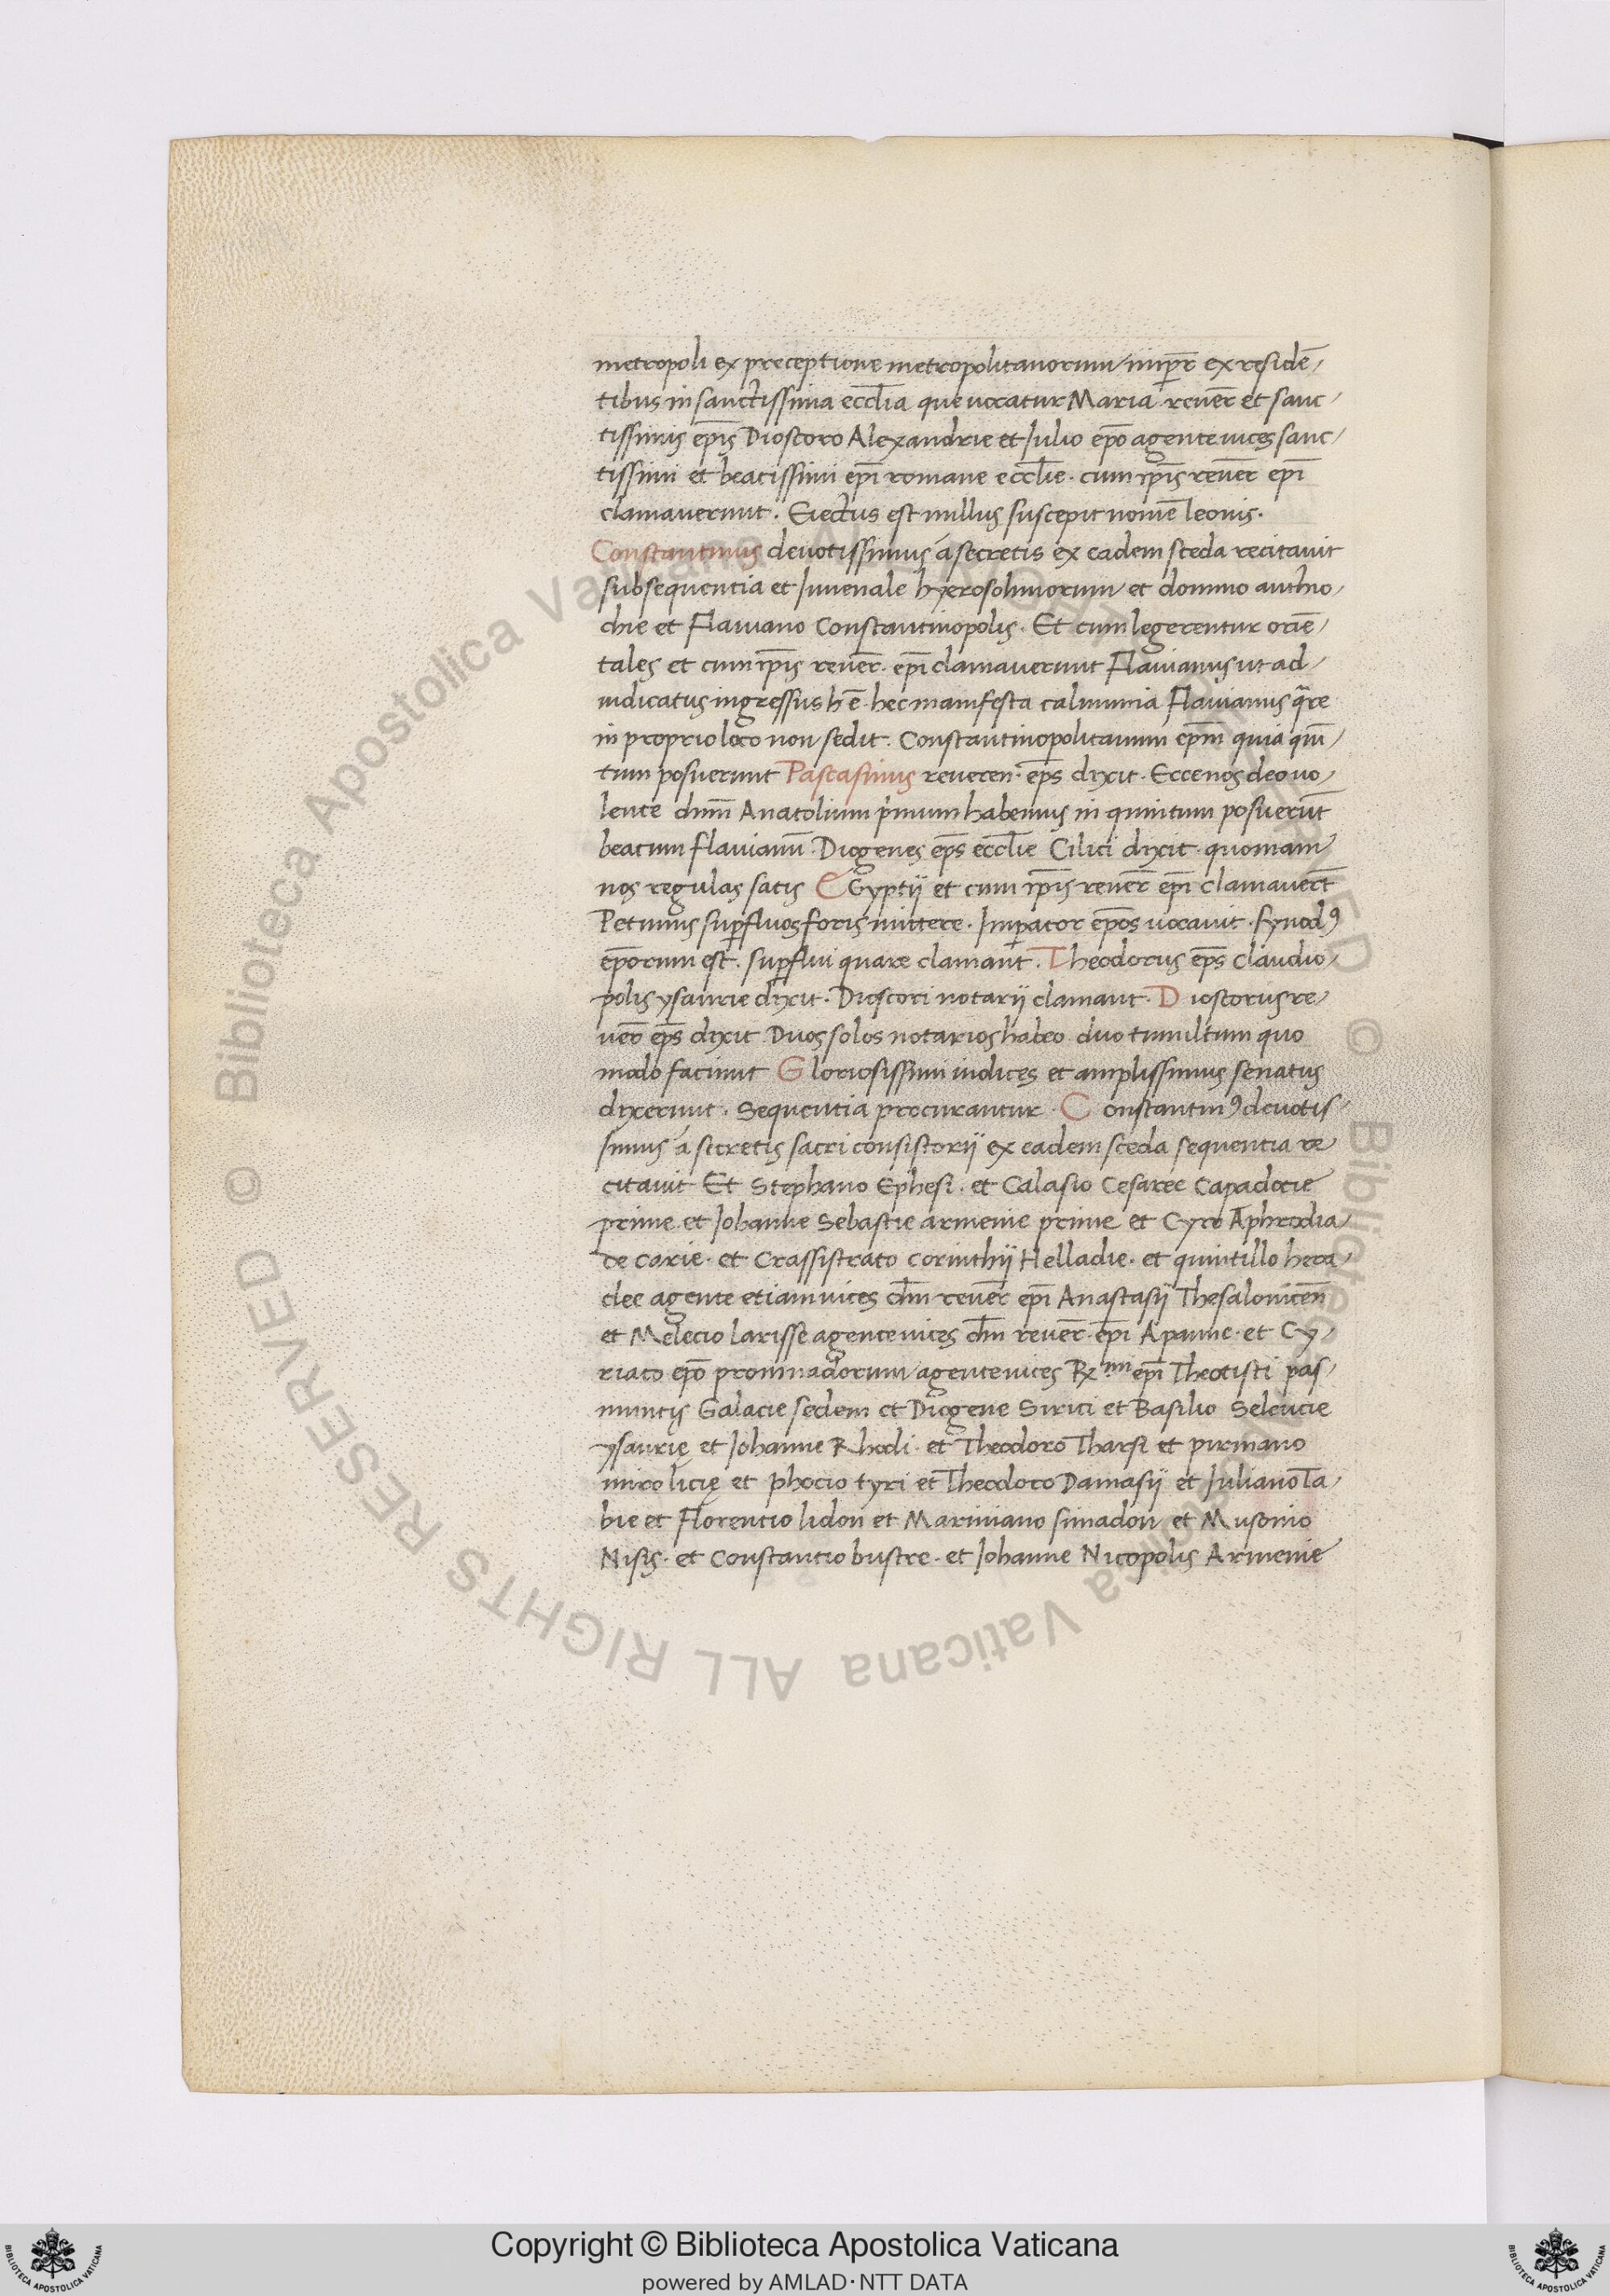 metropoli ex preceptione metropolitanorum / imꝑr̄ ex residē /
tibus in sanctissima eccl̄ia que uocatur Maria reuer̄ et sanc /
tissimis ep̄is Dioscoro Alexandrie et Julio ep̄o agente uices sanc /
tissimi et beatissimi ep̄i romane eccl̄ie · cum ip̄is reuer̄ ep̄i
clamauerunt · Eiectus est nullus suscepit nomē leonis ·
Constantinus deuotissimus á secretis ex eadem sceda recitauit
subsequentia et Juuenale hyerosolimorum et domno anthio /
chie et Flauiano Constantinopolis · Et cum legerentur oriē /
tales et cum ip̄is reuer̄ · ep̄i clamauerunt Flauianus ut ad /
iudicatus ingressus h ē · hec manifesta calumnia Flauianus q̄re
in proprio loco non sedit · Constantinopolitanum ep̄m quia qui͞ /
tum posuerunt Pascasinus reueren · ep̄s dixit · Ecce nos deo uo /
lente dn̄m Anatolium primum habemus in quintum posuerūt
beatum flauianū · Diogenes ep̄s eccl̄ie Cilici dixit · quoniam
nos regulas satis EGyptij et cum ip̄is reuer̄ ep̄i clamauer̄t
Petimus suꝑfluos foris mittere · Imꝑator ep̄os uocauit · synodꝰ
ep̄orum est · suꝑflui quare clamant · Theodorus ep̄s claudio /
polis ysaurie dixit · Dioscori notarij clamant · Dioscorus re /
uer̄ ep̄s dixit Duos solos notarios habeo duo tumultum quo
modo faciunt Gloriosissimi iudices et amplissimus senatus
dixerunt · Sequentia procurantur · Constantinꝰ deuotis /
simus á secretis sacri consistorij ex eadem sceda sequentia re
citauit Et Stephano Ephesi · et Calasio Cesaree Capadocie
prime · et Johanne Sebastie armenie prime et Cyro Aphrodia /
de carie · et Crassistrato corinthij Helladie · et quintillo hera /
clee agente etiam uices dn̄i reuer̄ ep̄i Anastasij Thesalonicen̄
et Melecio larisse agente uices dn̄i reuer̄ · ep̄i Apanne · et Cy /
riaco ep̄o prominadorum agente uices Rx̄ mi ep̄i Theotisti pas /
nuntij Galacie sedem et Diogene Sirici et Basilio Seleucie
ysaurię et Johanne Rhodi · et Theodoro Tharsi et pirmano
miro licię et phocio tyri et Theodoco Damasij et Juliano Ta /
bie et Florentio lidon et Mariniano simadon et Musonio
Nisis · et Constantio bustre · et Johanne Nicopolis Armenie
Copyright © Biblioteca Apostolica Vaticana
powered by AMLAD·NTT DATA
© Biblioteca Apostolica Vaticana ALL RIGHTS RESERVED
© Biblioteca Apostolica Vaticana ALL RIGHTS RESERVED